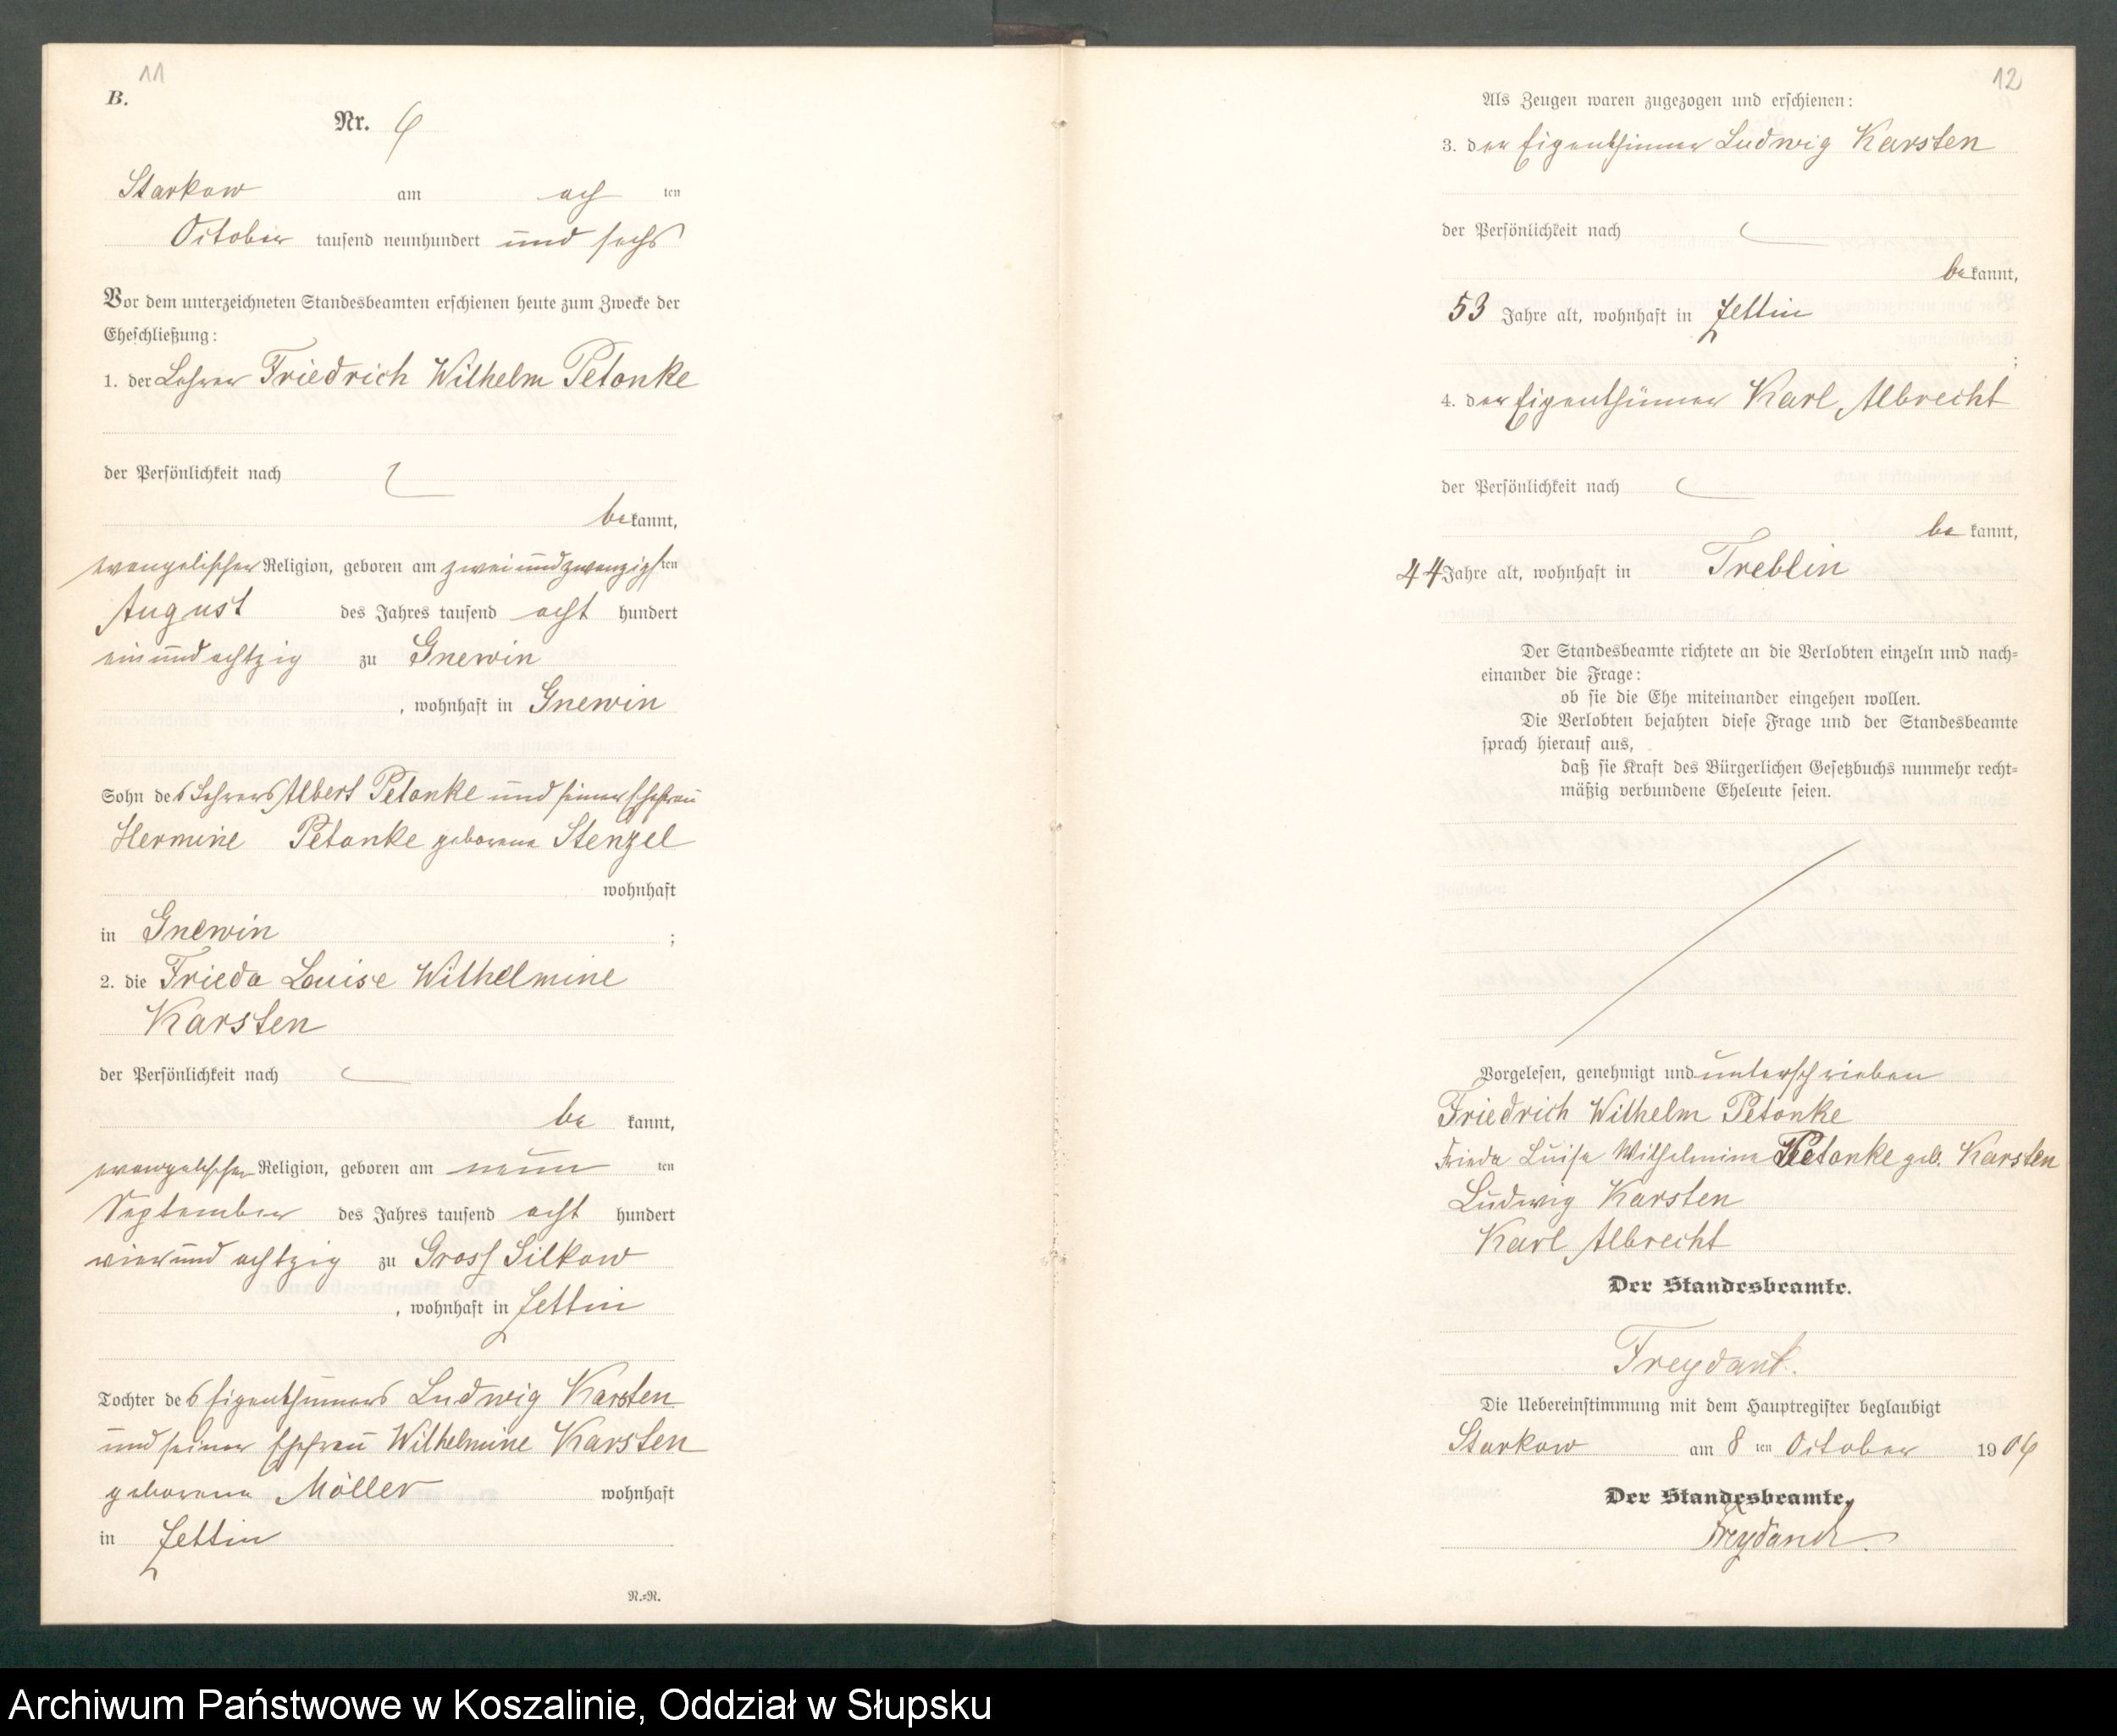 11
B.
Nr. 6
Starkow am ach ten
October tausend neunhundert und sechs
Vor dem unterzeichneten Standesbeamten erschienen heute zum Zwecke der
Eheschließung:
1. der Lehrer Friedrich Wilhelm Petonke
der Persönlichkeit nach
be kannt,
evangelischer Religion, geboren am zweiundzwanzigsten
August des Jahres tausend acht hundert
einundachtzig zu Gnewin
, wohnhaft in Gnewin
Sohn des Lehrers Albert Petonke und seiner Ehefrau
Hermine Petonke geborene Stenzel
wohnhaft
in Gnewin ;
2. die Frieda Louise Wilhelmine
Karsten
der Persönlichkeit nach
be kannt,
evangelischer Religion, geboren am neun ten
September des Jahres tausend acht hundert
vierundachtzig zu Gross Silkow
, wohnhaft in Zettin
Tochter des Eigenthümers Ludwig Karsten
und seiner Ehefrau Wilhelmine Karsten
geborene Möller wohnhaft
in Zettin
N.=R.
12
Als Zeugen waren zugezogen und erschienen:
3. der Eigenthümer Ludwig Karsten
der Persönlichkeit nach
be kannt,
53 Jahre alt, wohnhaft in Zettin
;
4. der Eigenthümer Karl Albrecht
der Persönlichkeit nach
be kannt,
44 Jahre alt, wohnhaft in Treblin
Der Standesbeamte richtete an die Verlobten einzeln und nach=
einander die Frage:
ob sie die Ehe miteinander eingehen wollen.
Die Verlobten bejahten diese Frage und der Standesbeamte
sprach hierauf aus,
daß sie Kraft des Bürgerlichen Gesetzbuchs nunmehr recht=
mäßig verbundene Eheleute seien.
Vorgelesen, genehmigt und unterschrieben
Friedrich Wilhelm Petonke
Frieda Luise Wilhelmine Petonke geb. Karsten
Ludwig Karsten
Karl Albrecht
Der Standesbeamte.
Freydank.
Die Uebereinstimmung mit dem Hauptregister beglaubigt
Starkow am 8 ten October 1906
Der Standesbeamte.
Freydank.
Archiwum Państwowe w Koszalinie, Oddział w Słupsku